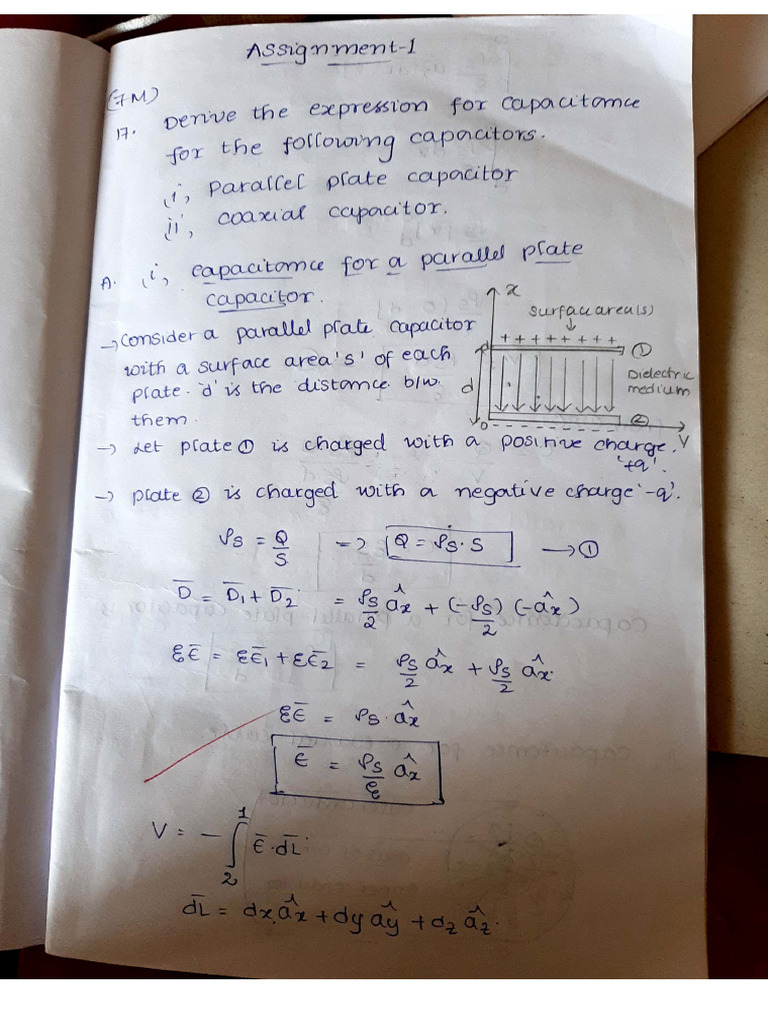 Assignment-1
(7M)
17. Derive the expression for capacitance
for the following capacitors.
(i, parallel plate capacitor
ii, coaxial capacitor.
A. (i, capacitance for a parallel plate
capacitor.
→ consider a parallel plate capacitor
with a surface area 's' of each
plate. 'd' is the distance b/w.
them.
x
surface area(s)
+ + + + + + + +
①
Dielectric
medium
d
d
②
0
y
→ Let plate ① is charged with a positive charge.
'+q'.
→ plate ② is charged with a negative charge '-q'.
ρs = Q/S => Q = ρs·S → ①
D̅ = D̅1 + D̅2 = ρs/2 âx + (-ρs)/2 (-âx)
εE̅ = εE̅1 + εE̅2 = ρs/2 âx + ρs/2 âx.
εE̅ = ρs·âx
E̅ = ρs/ε âx
V = - ∫₂¹ E̅·dL̅
dL̅ = dx âx + dy ây + dz âz.